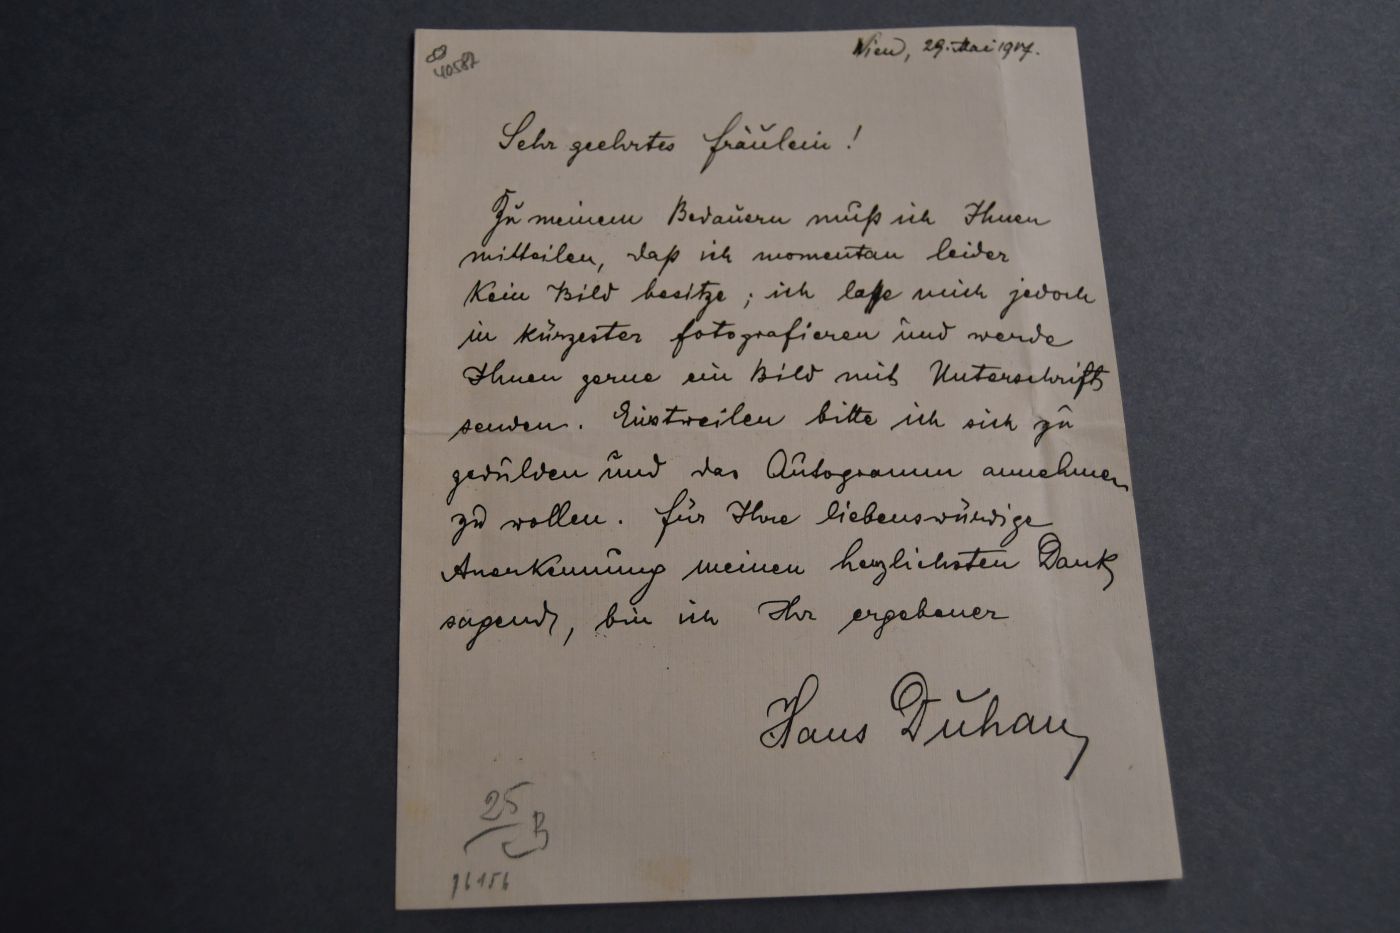 40587
Wien, 29. Mai 1917.
Sehr geehrtes Fräulein!
Zu meinem Bedauern muß ich Ihnen
mitteilen, daß ich momentan leider
kein Bild besitze; ich laße mich jedoch
in kürzester fotografieren und werde
Ihnen gerne ein Bild mit Unterschrift
senden. Einstweilen bitte ich sich zu
gedulden und das Autogramm annehmen
zu wollen. Für Ihre liebenswürdige
Anerkennung meinen herzlichsten Dank
sagend, bin ich Ihr ergebener
Hans Duhan
25
B